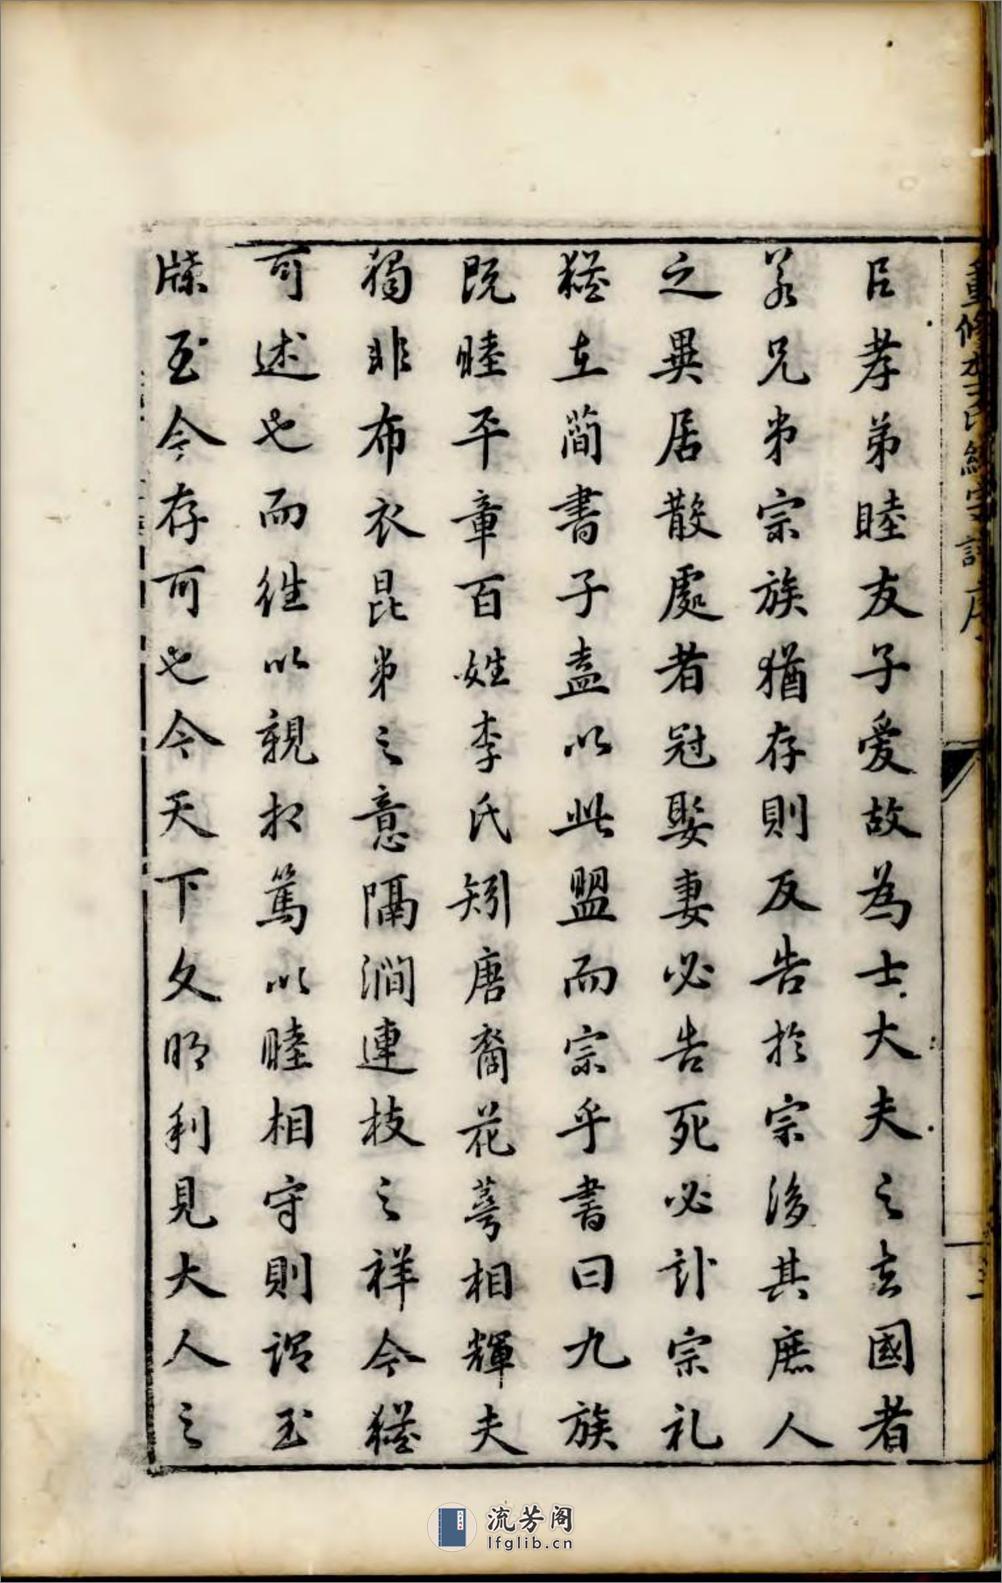 臣孝弟睦友子爱故為士大夫之去國者
若兄弟宗族猶存則反告於宗後其庶人
之異居散處者冠娶妻必告死必訃宗礼
猶在簡書子盍以此盟而宗乎書曰九族
既睦平章百姓李氏矧唐裔花萼相輝夫
獨非布衣昆弟之意隔澗連枝之祥今猶
可述也而徃以親相篤以睦相守則谓玉
牒至今存可也今天下文明利見大人之
流芳阁
lfglib.cn